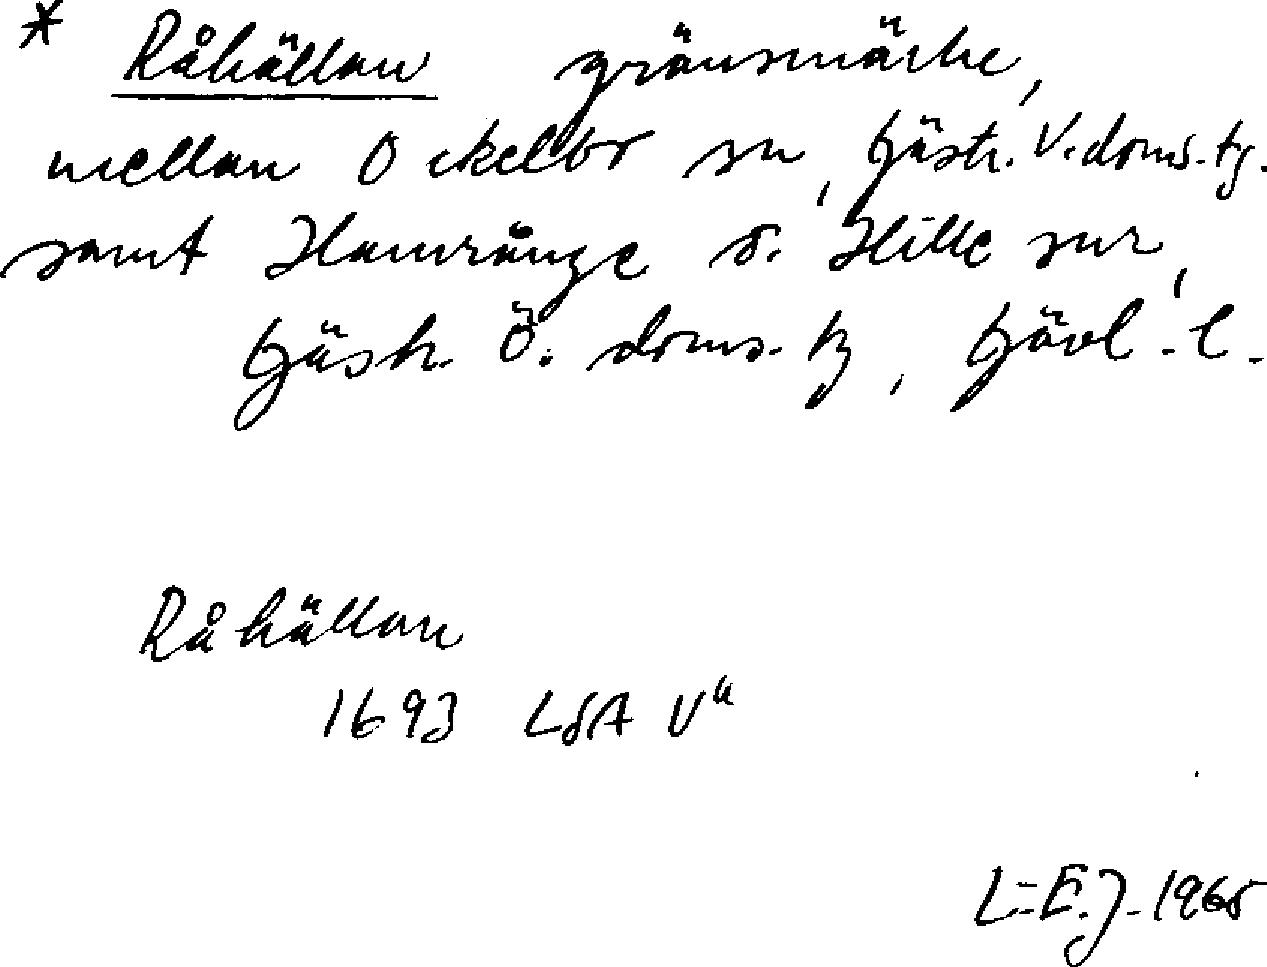 * Råhällan gränsmärke,
mellan Ockelbo sn, Gästr. V. doms. tg.
samt Hamrånge o. Hille snr,
Gästr. Ö. doms. tg, Gävl. l.
Råhällan
1693 LSA V
L-E.J. 1965